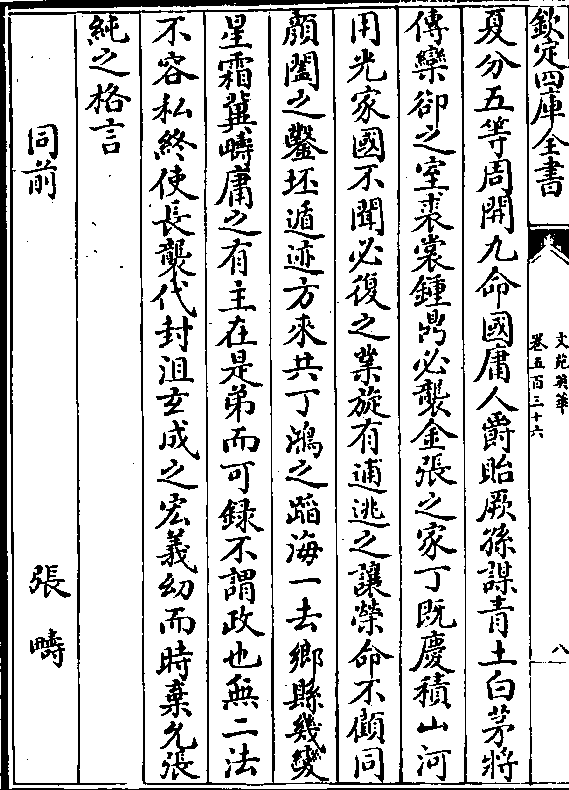 欽定四庫全書
文苑英華
卷五百三十六
八
夏分五等周開九命國庸人爵貽厥孫謀青土白茅將
傳欒郤之室裘裳鍾鼎必襲金張之家丁既慶積山河
用光家國不聞必復之業旋有逋逃之讓榮命不顧同
顔闔之鑿坯遁迹方來共丁鴻之蹈海一去鄉縣幾變
星霜冀疇庸之有主在是弟而可録不謂政也無二法
不容私終使長襲代封沮玄成之宏義幼而時棄允張
純之格言
同前
張疇